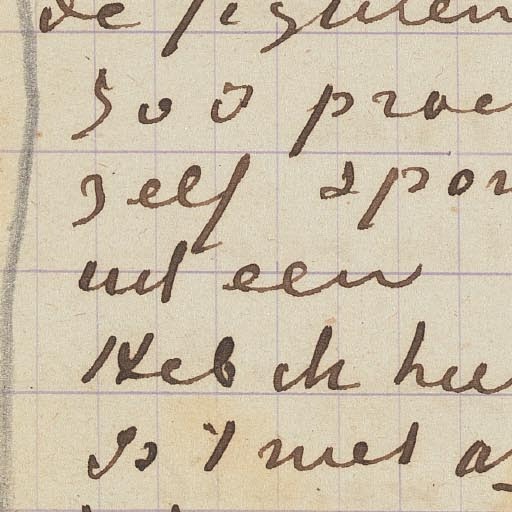 de figuren
zoo proe
zelf spon
uit een
Heb ik hee
Is 't met a